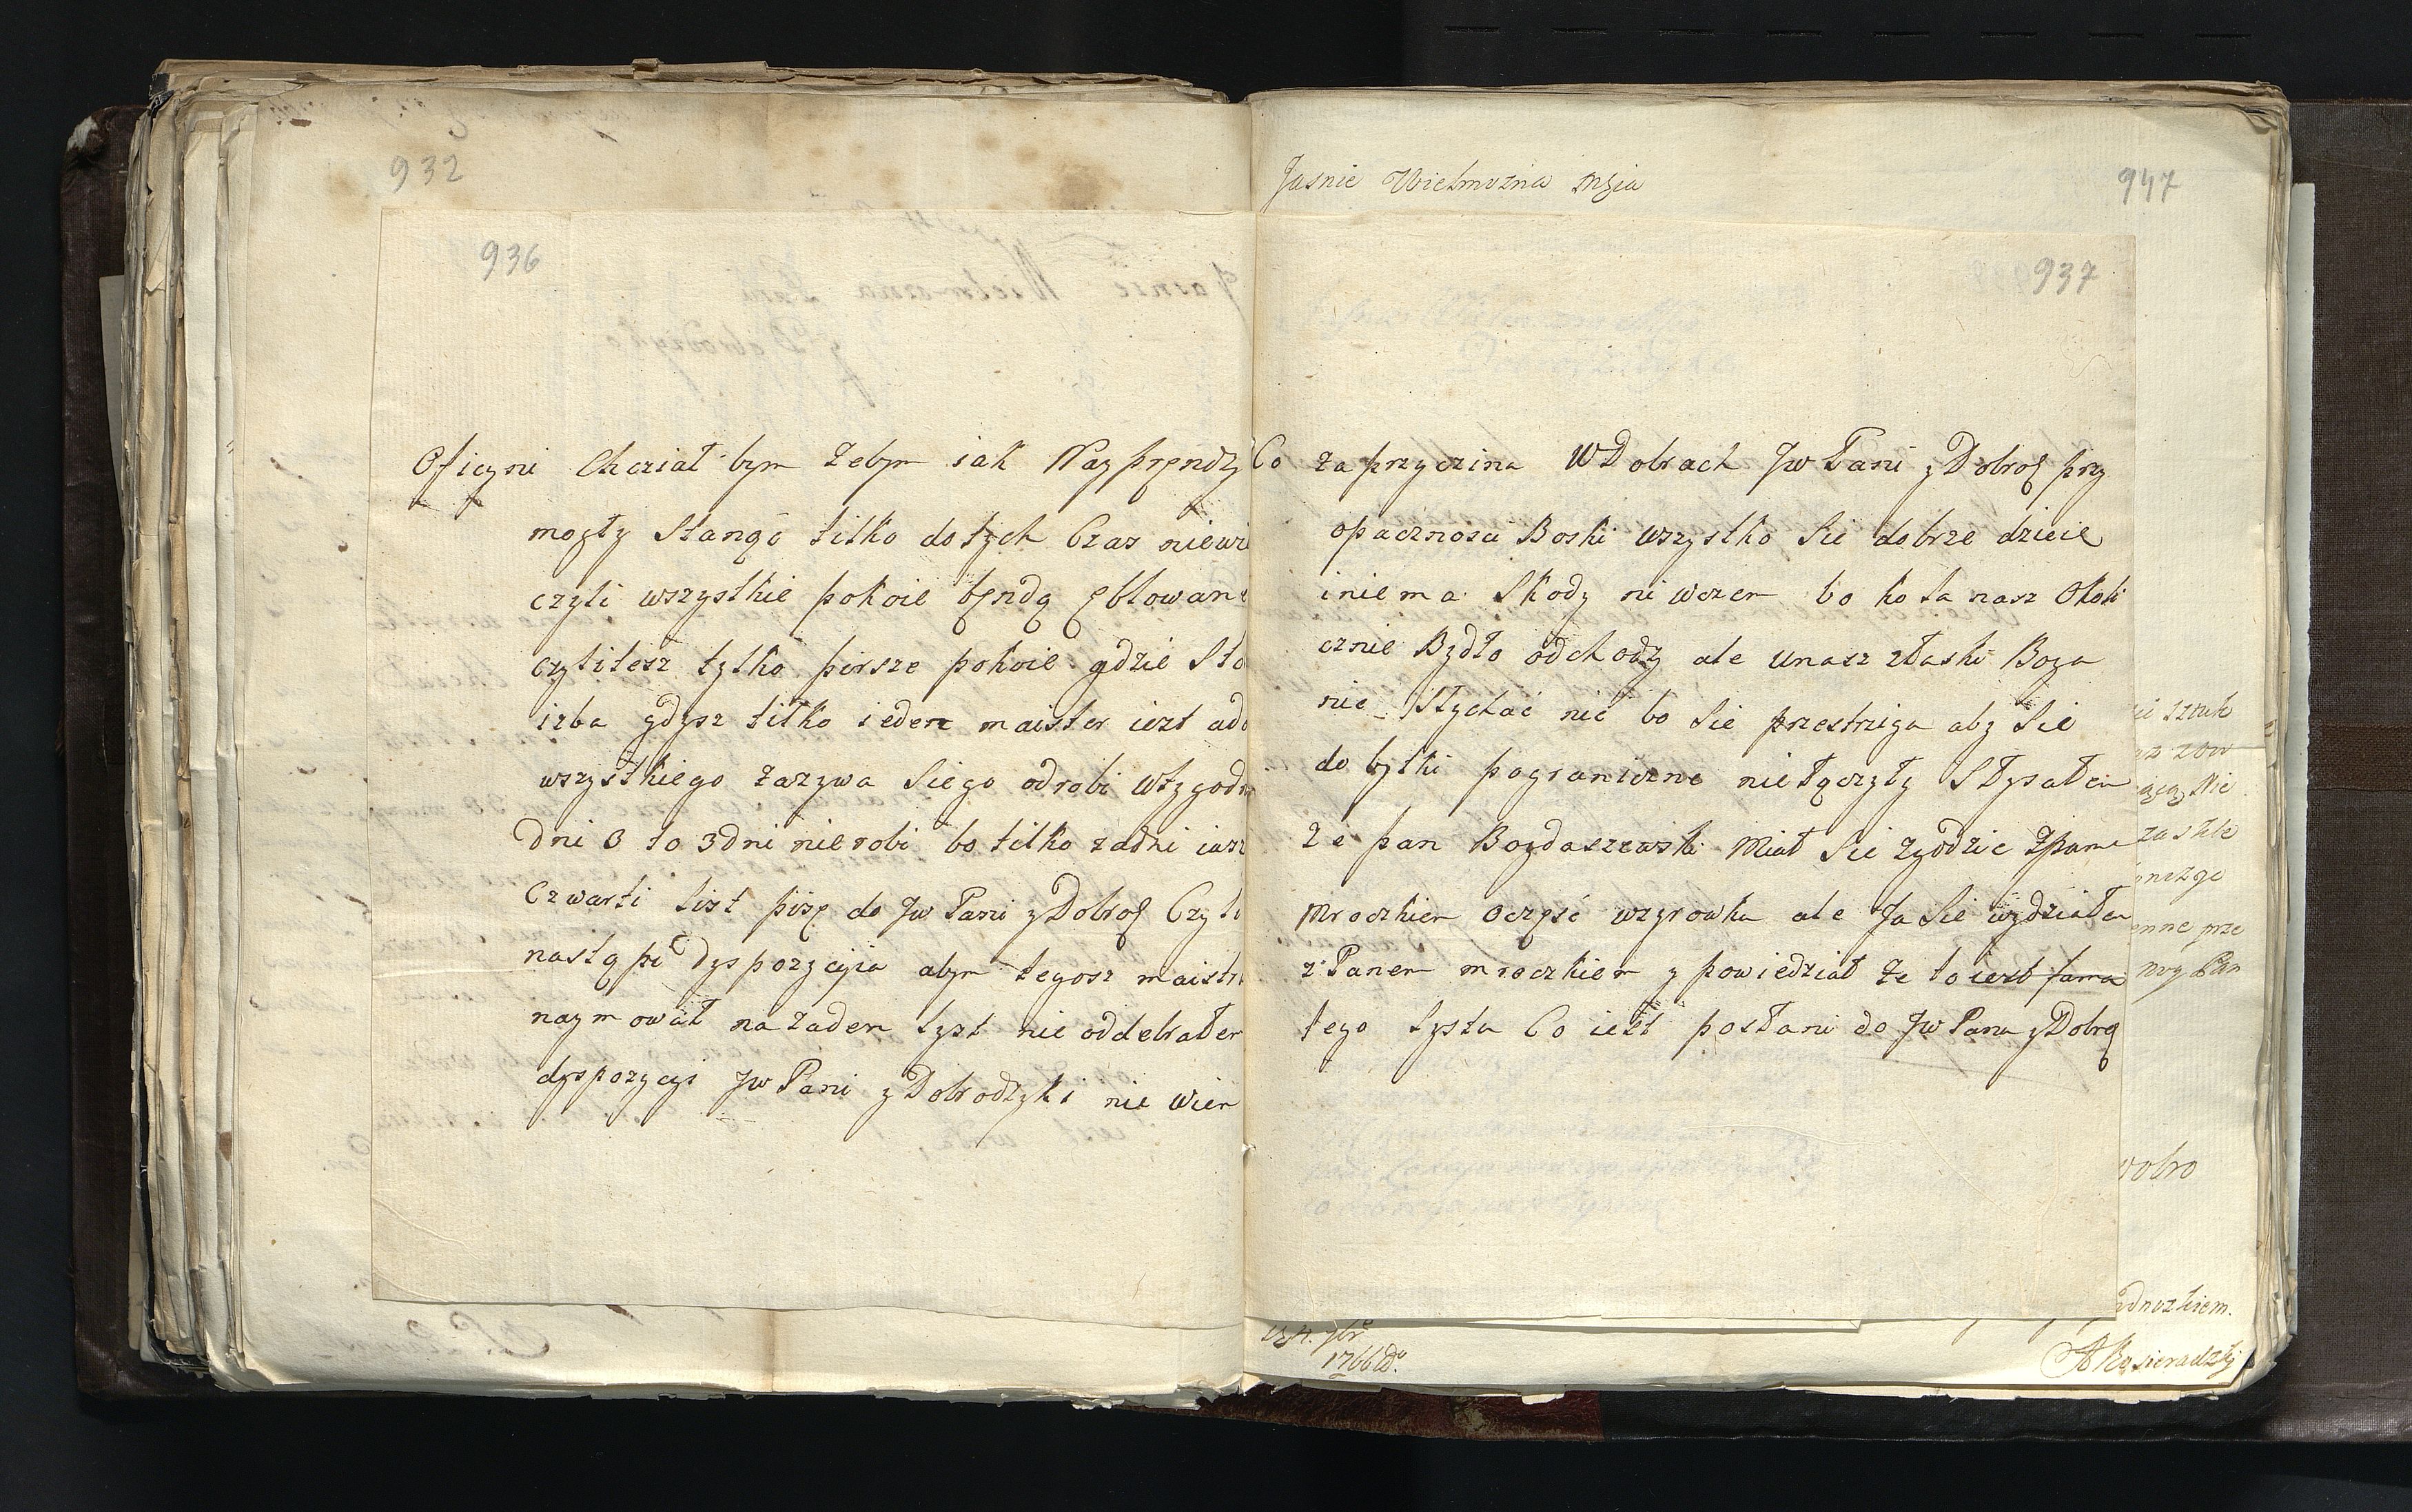 932
936
Oficyni Chciał bym zebym iak Nayprędzy
mogły stanąć tilko dotych Czas niewi
czyli wszystkie pokoie będą
czylitesz tylko pirsze pokoie gdzie sto
izba gdysz tilko ieden maister iest ado
wszystkiego zazywa Siego odrobi wtygodn
dni 3 to 3 dni nierobi bo tilko zadni
Czwarti list piszę do Jw Pani y Dobrof Czyli
nastąpi dyspozycyia abym tegosz maistr
naymował na zaden lyst nie oddebrałem
dyspozycyi Jw Pani y Dobrodzyki nie wiem
Jasnie Wielmozna Mśia
947
937
Co za przyczina WDobrach Jw Pani y Dobrof przy
opacznosci Boski wszystko Sie dobrze dzieie
iniema Skody niwczem bo koła nasz Okoli
cznie Bydło odchody ale unasz złaski Boga
nie Słychać nic bo Sie przestrziga aby Sie
dobytki pograniczne niełączyły Słysałem
ze pan Bogdaszewski Miał Sie zgodzic zpanem
Mroczkiem oczęść wzyrowku ale Ja Sie wydziałem
z Panem mroczkiem y powiedział ze to iest fama
tego lysta Co iest posłani do Jw Pana y Dobro
sztuk
zow
Nie
zaskle
przc
Pan
dobro
dnozkiem.
1766